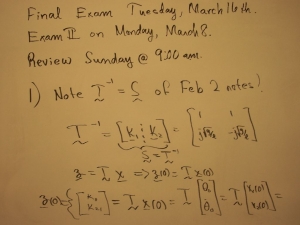 Final Exam Tuesday, March 16th.
Exam II on Monday, March 8.
Review Sunday @ 9:00 am.
1) Note T⁻¹ = S of Feb 2 notes!
T⁻¹ = [K₁ ⋮ K₂] = [1 1
S = T⁻¹
z = T x => z(0) = T x(0)
z(0) = = T x(0) = T = T [x₁(0) x₂(0)] =